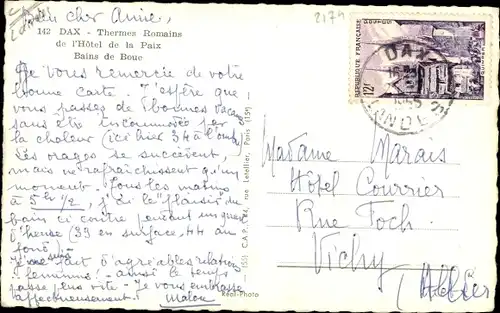 142 DAX - Thermes Romains
de l'Hôtel de la Paix
Bains de Boue
Je vous remercie de votre
bonne carte. J'espère que
vous passez de bonnes vacances
sans être incommodée par
la chaleur (ici hier 34 à l'ombre
Les orages se succèdent,
mais ne rafraîchissent qu'un
moment. Tous les matins
à 5h 1/2, j'ai le "plaisir" du
bain ci contre pendant un quart
d'heure (39 en surface, 44 au
fond)
Je me suis fait d'agréables relations
féminines - ainsi le temps
passe plus vite - Je vous embrasse
affectueusement. Malou
Réel-Photo
C.A.P. rue Letellier, Paris (15e)
REPUBLIQUE FRANÇAISE
POSTES
12F
QUIMPER
DAX
LANDES
Madame Marais
Hôtel Courrier
Rue Foch
Vichy
(Allier)